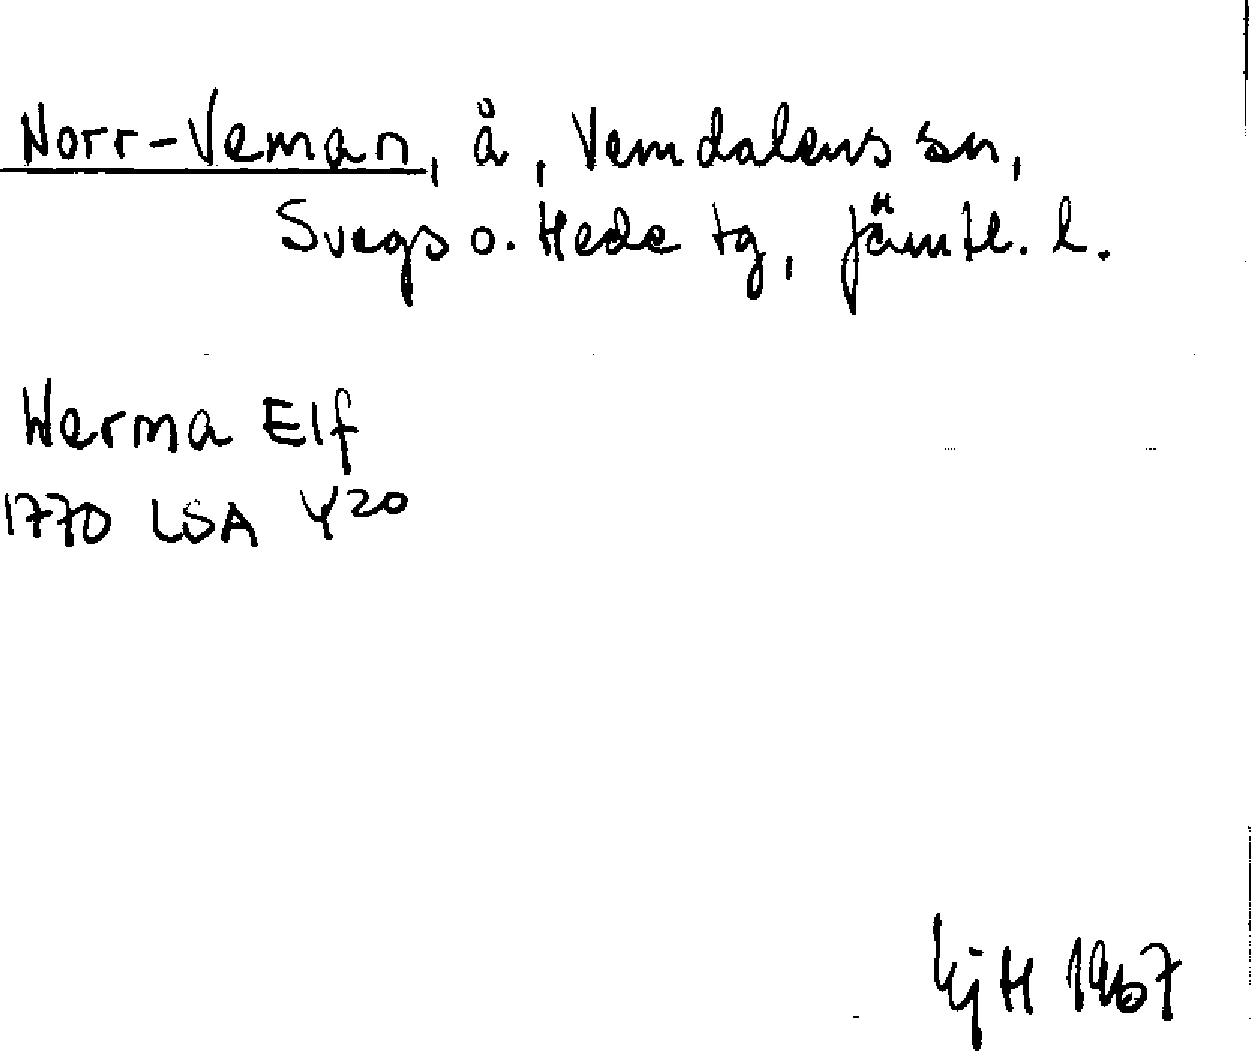 Norr-Veman, å, Vemdalens sn,
Svegs o. Hede tg, Jämtl. l.
Werma Elf
1770 LSA Y20
1967